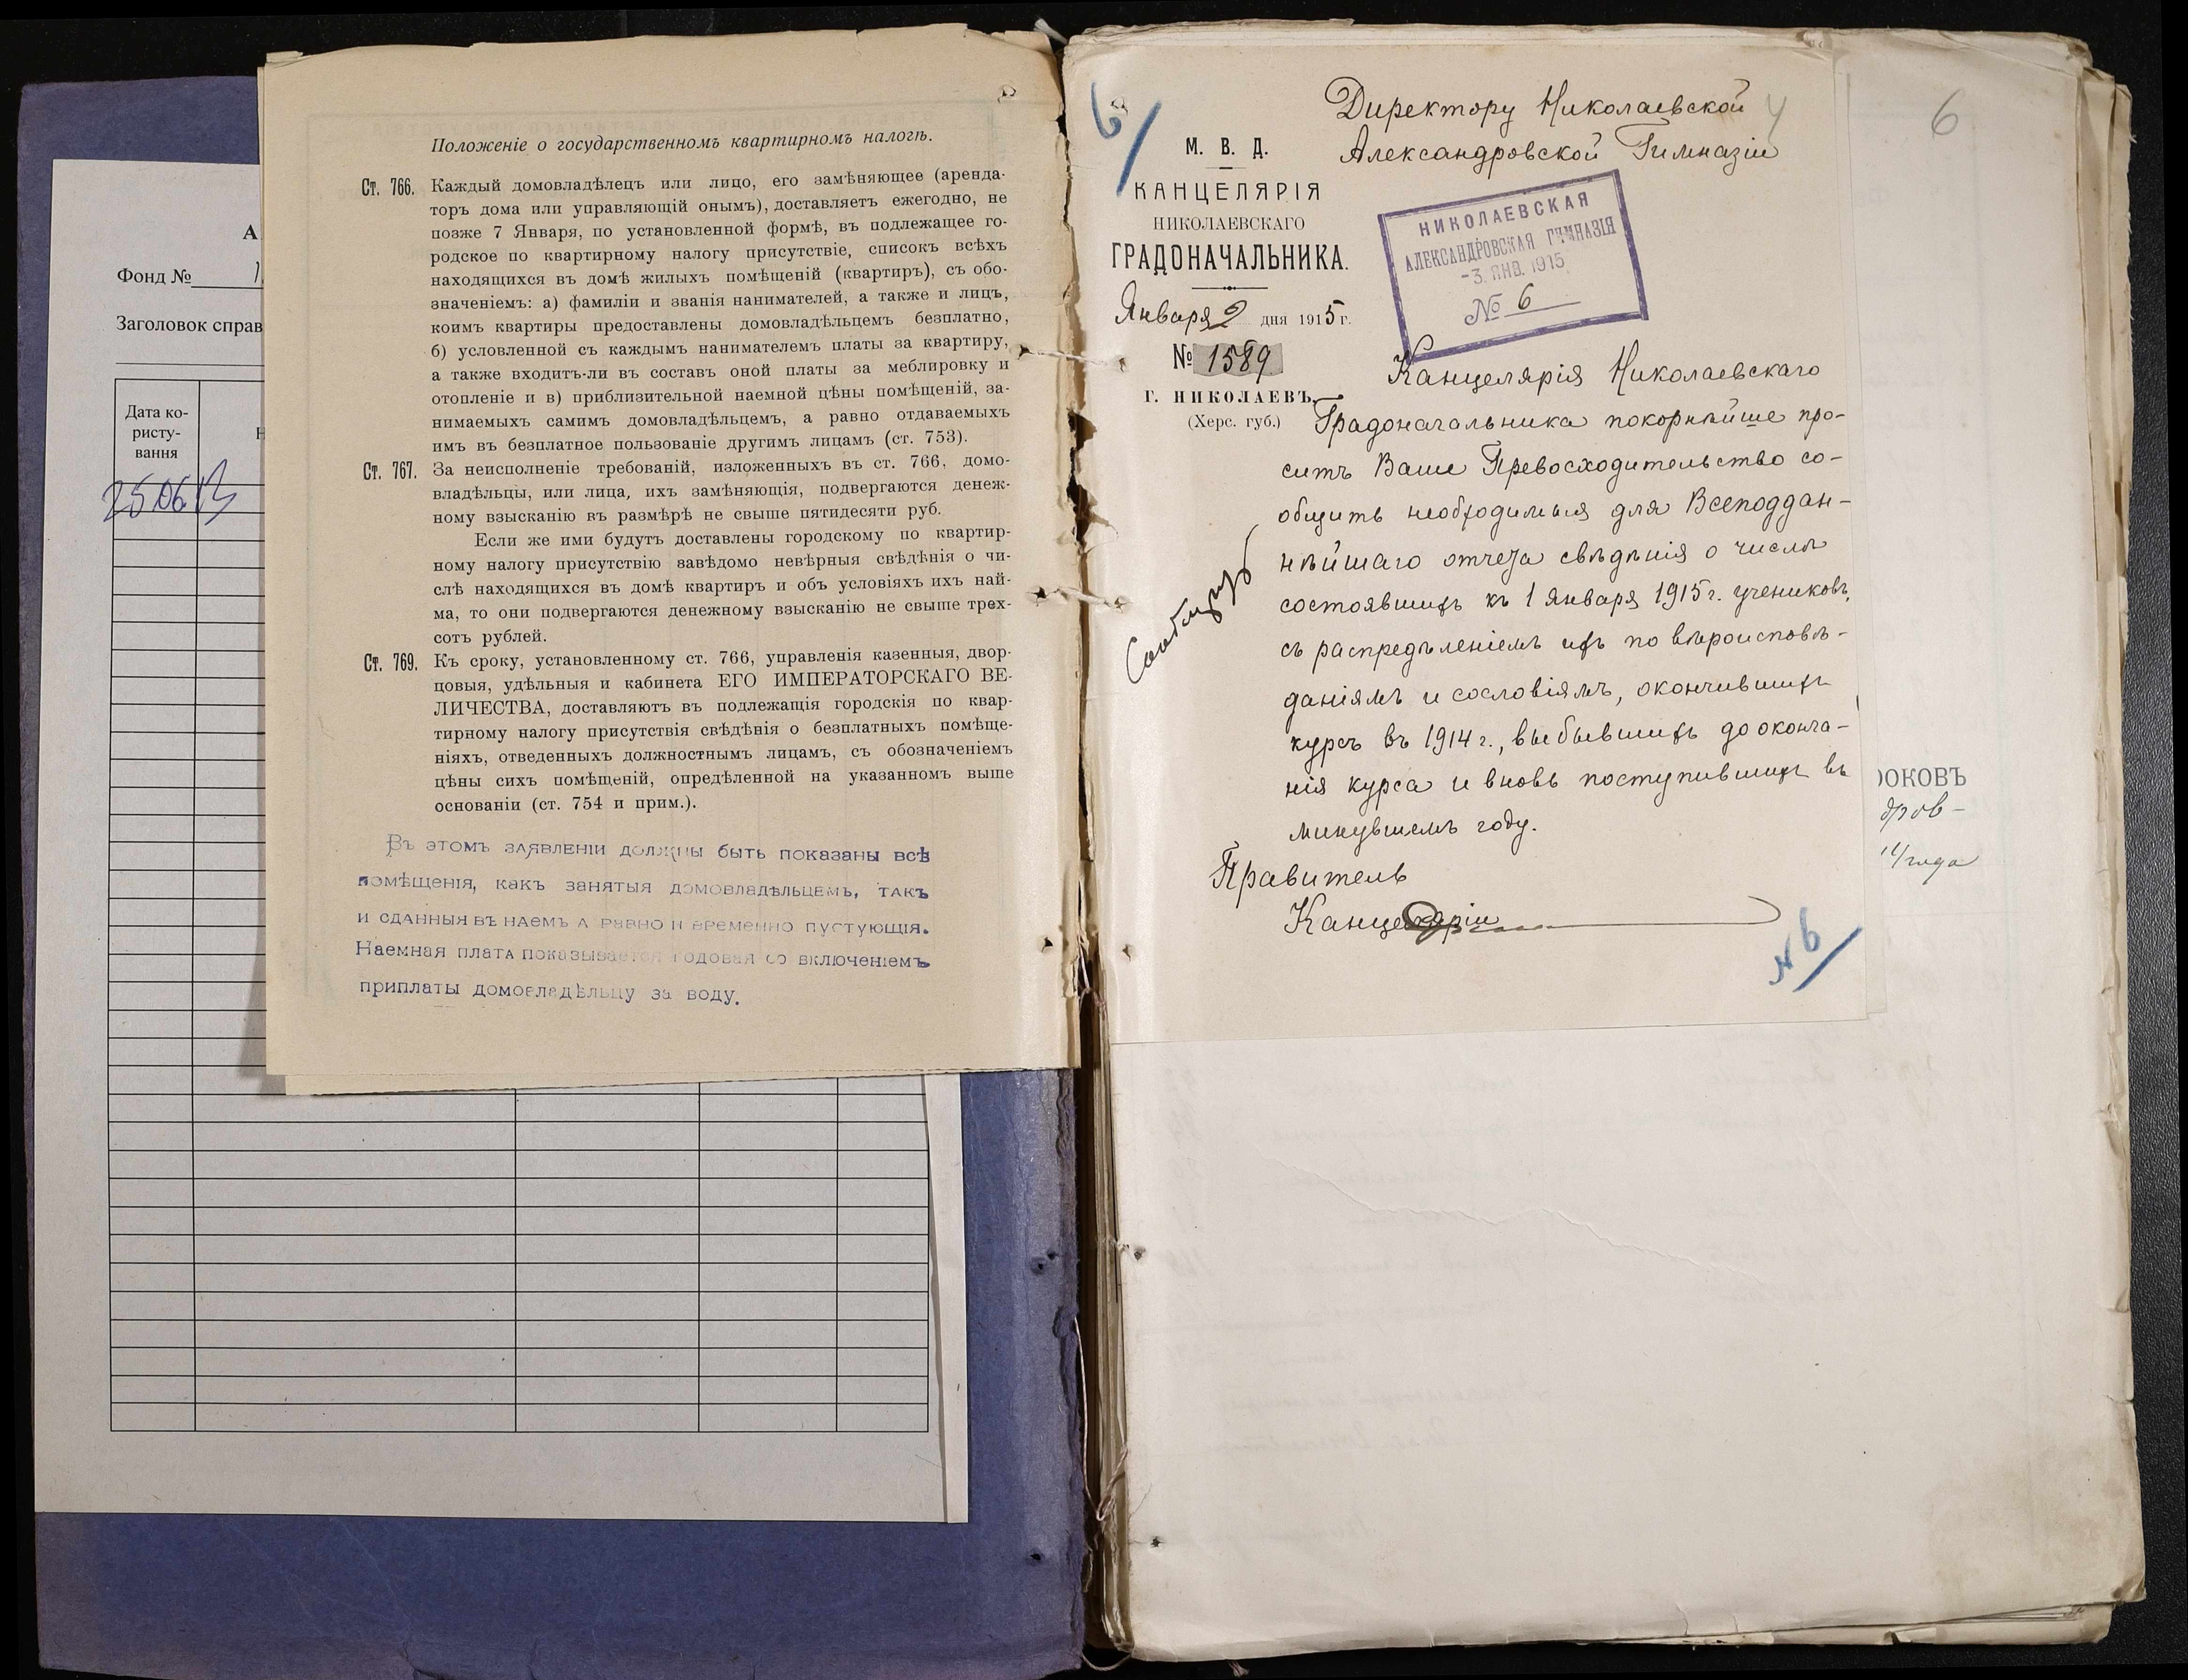 А
Фонд №
Заголовок справ
Дата ко-
ристу-
вання
Н
25.06.13
Положеніе о государственномъ квартирномъ налогѣ.
Ст. 766. Каждый домовладѣлецъ или лицо, его замѣняющее (аренда-
торъ дома или управляющій онымъ), доставляетъ ежегодно, не
позже 7 Января, по установленной формѣ, въ подлежащее го-
родское по квартирному налогу присутствіе, списокъ всѣхъ
находящихся въ домѣ жилыхъ помѣщеній (квартиръ), съ обо-
значеніемъ: а) фамиліи и званія нанимателей, а также и лицъ,
коимъ квартиры предоставлены домовладѣльцемъ безплатно,
б) условленной съ каждымъ нанимателемъ платы за квартиру,
а также входитъ-ли въ составъ оной платы за меблировку и
отопленіе и в) приблизительной наемной цѣны помѣщеній, за-
нимаемыхъ самимъ домовладѣльцемъ, а равно отдаваемыхъ
имъ въ безплатное пользованіе другимъ лицамъ (ст. 753).
Ст. 767. За неисполненіе требованій, изложенныхъ въ ст. 766, домо-
владѣльцы, или лица, ихъ замѣняющія, подвергаются денеж-
ному взысканію въ размѣрѣ не свыше пятидесяти руб.
Если же ими будутъ доставлены городскому по квартир-
ному налогу присутствію завѣдомо невѣрныя свѣдѣнія о чи-
слѣ находящихся въ домѣ квартиръ и объ условіяхъ ихъ най-
ма, то они подвергаются денежному взысканію не свыше трех-
сотъ рублей.
Ст. 769. Къ сроку, установленному ст. 766, управленія казенныя, двор-
цовыя, удѣльныя и кабинета ЕГО ИМПЕРАТОРСКАГО ВЕ-
ЛИЧЕСТВА, доставляютъ въ подлежащія городскія по квар-
тирному налогу присутствія свѣдѣнія о безплатныхъ помѣще-
ніяхъ, отведенныхъ должностнымъ лицамъ, съ обозначеніемъ
цѣны сихъ помѣщеній, опредѣленной на указанномъ выше
основаніи (ст. 754 и прим.).
Въ этомъ заявленіи должны быть показаны всѣ
помѣщенія, какъ занятыя домовладѣльцемъ, такъ
и сданныя въ наемъ а равно и временно пустующія.
Наемная плата показывается годовая со включеніемъ
приплаты домовладѣльцу за воду.
6
Директору Николаевской
Александровской Гимназіи
4
6
М. В. Д.
КАНЦЕЛЯРІЯ
НИКОЛАЕВСКАГО
ГРАДОНАЧАЛЬНИКА.
Января 2 дня 1915 г.
№ 1589
Г. НИКОЛАЕВЪ.
(Херс. губ.)
НИКОЛАЕВСКАЯ
АЛЕКСАНДРОВСКАЯ ГИМНАЗІЯ
-3. ЯНВ. 1915
№ 6
Канцелярія Николаевскаго
Градоначальника покорнѣйше про-
ситъ Ваше Превосходительство со-
общить необходимыя для Всеподдан-
нѣйшаго отчета свѣдѣнія о числѣ
состоявшихъ къ 1 Января 1915 г. учениковъ,
съ распредѣленіемъ ихъ по вѣроисповѣ-
даніямъ и сословіямъ, окончившихъ
курсъ въ 1914 г., выбывшихъ до оконча-
нія курса и вновь поступившихъ въ
минувшемъ году.
Правитель
Канцеляріи
Сообщить
№ 6
РОКОВЪ
дров-
14 года